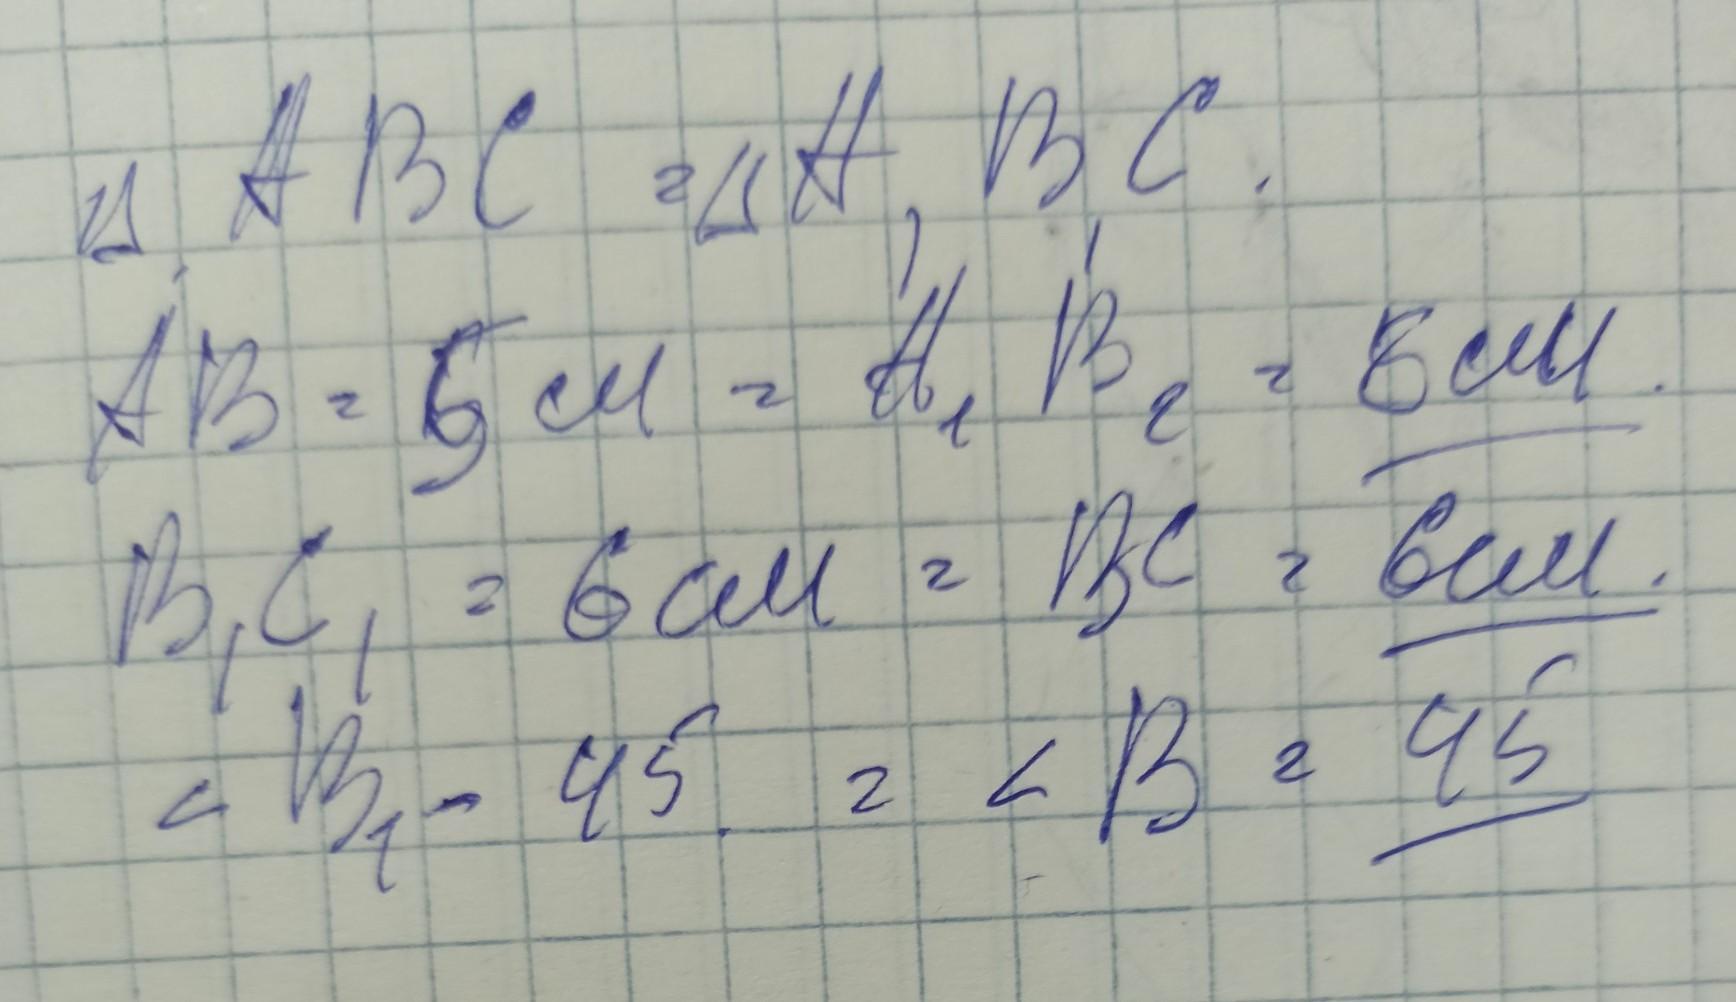 Δ ABC = Δ A₁B₁C.
AB = 5 см = A₁B₂ = 5 см.
B₁C₁ = 6 см = BC = 6 см.
< B₁ - 45. = < B = 45